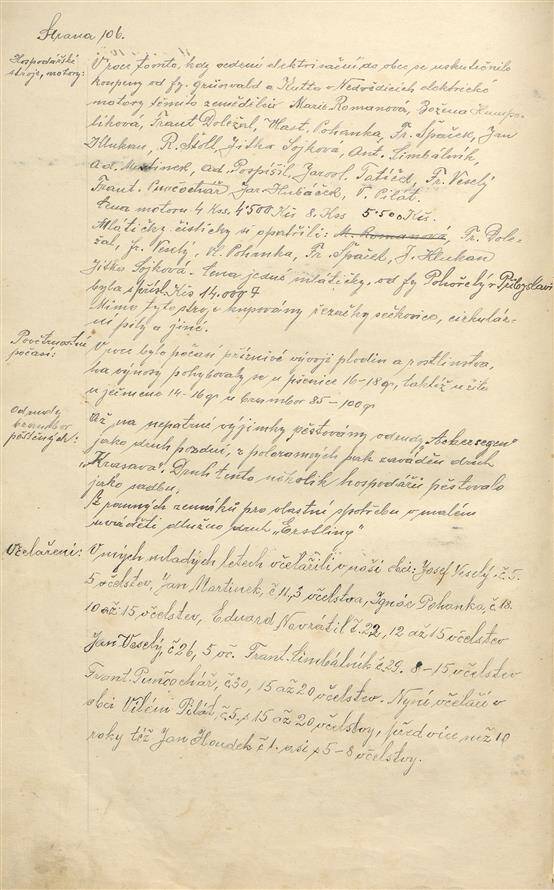 Strana 106.
Hospodářské
stroje, motory:
V roce tomto, kdy vedení elektrisační do obce se uskutečnilo
koupeny od fy. Grünwald a Kutta v Nedvědicích elektrické
motory těmito zemědělci: Marie Romanová, Božena Kumpo-
liková, Frant Doležal, Vlast. Pohanka, Fr. Špaček, Jan
Klukan, R. Štol, Jitka Sojková, Ant. Cimbálník,
Ad. Martinek, Ad. Pospíšil, Jarosl. Tatíček, Fr. Veselý
Frant. Punčochář, Jar. Hubáček, V. Pilát.
Cena motoru 4 Kss. 4'500 Kčs 8. Kss 5'500 Kčs.
Mlátičky, čističky si opatřili: M. Romanová, Fr. Dole-
žal, Fr. Veselý, Vl. Pohanka, Fr. Špaček, J. Klukan
Jitka Sojková. Cena jedné mlátičky, od fy Pohořelý v Přibyslavi
byla s přísl. Kčs 14.000
Mimo tyto stroje kupovány řezačky sečkovice, cirkulár-
ní pily a jiné.
Povětrnostní
počasí:
V roce bylo počasí příznivé vývoji plodin a rostlinstva,
ha výnosy pohybovaly se u pšenice 16-18 q, taktéž u žita
u ječmene 14-16 q u brambor 85-100 q
Odrudy
brambor
pěstěných:
Až na nepatrné výjimky pěstovány odrudy „Ackersegen“
jako druh pozdní, z poloranných pak zaváděn druh
„Krasava“. Druh tento několik hospodářů pěstovalo
jako sadbu.
Z ranných zemáků pro vlastní spotřebu v malém
uváděti dlužno druh „Erstling“
Včelaření:
V mých mladých letech včelařili v naší obci: Josef Veselý, č. 5.
5 včelstev, Jan Martinek, č 11, 3 včelstva, Ignác Pohanka, č. 18.
10 až 15 včelstev, Eduard Navrátil č. 22, 12 až 15 včelstev
Jan Veselý, č 26, 5 vč. Frant. Cimbálník č. 29. 8-15 včelstev
Frant. Punčochář, č 30, 15 až 20 včelstev. Nyní včelaří v
obci Vilém Pilát, č. 5, s 15 až 20 včelstvy, před více než 10
roky též Jan Houdek č 1. asi s 5-8 včelstvy.